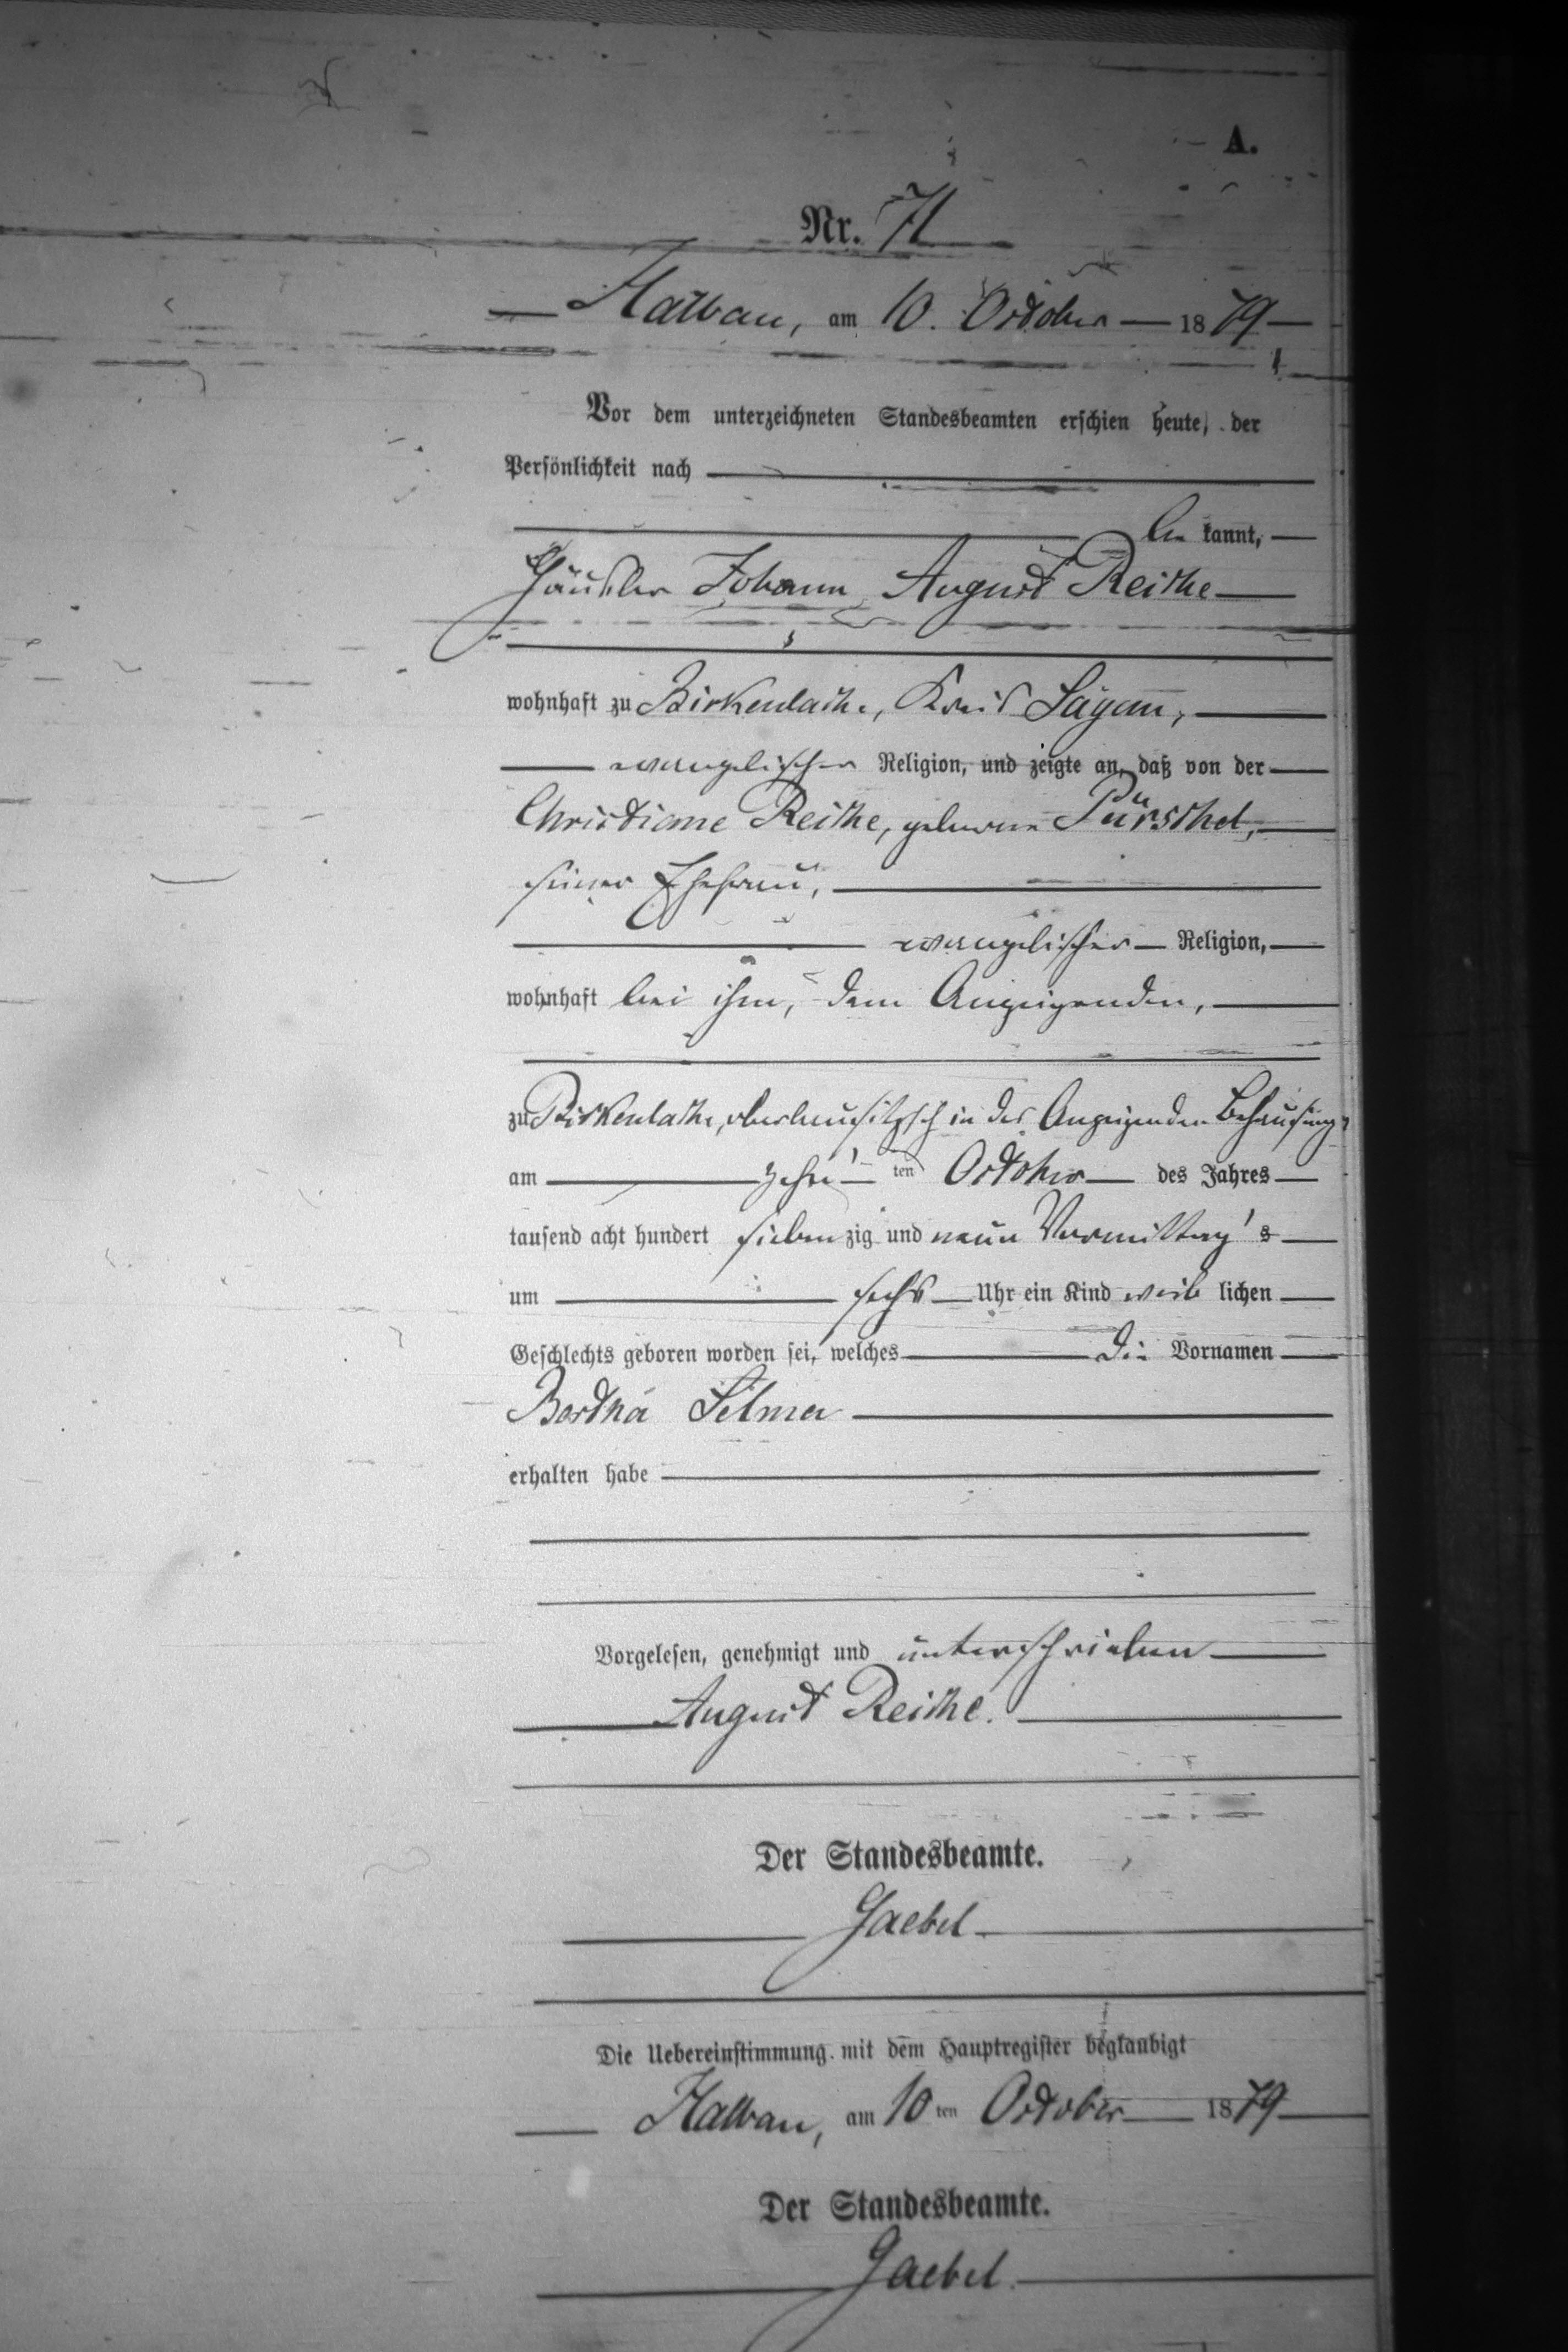 A.
Nr. 71
Halbau, am 10. October 1879
Vor dem unterzeichneten Standesbeamten erschien heute, der
Persönlichkeit nach
be kannt,
Häusler Johann August Reiche
wohnhaft zu Birkenlache, Kreis Sagan,
evangelischer Religion, und zeigte an, daß von der
Christiane Reiche, geborene Pürschel,
seiner Ehefrau,
evangelischer Religion,
wohnhaft bei ihm, dem Anzeigenden,
zu Birkenlache, oberlausitzsch in des Anzeigenden Behausung,
am zehn ten October des Jahres
tausend acht hundert sieben zig und neun Vormittag s
um sechs Uhr ein Kind weib lichen
Geschlechts geboren worden sei, welches die Vornamen
Bertha Selma
erhalten habe
Vorgelesen, genehmigt und unterschrieben
August Reiche.
Der Standesbeamte.
Gaebel
Die Uebereinstimmung mit dem Hauptregister beglaubigt
Halbau, am 10 ten October 1879
Der Standesbeamte.
Gaebel.